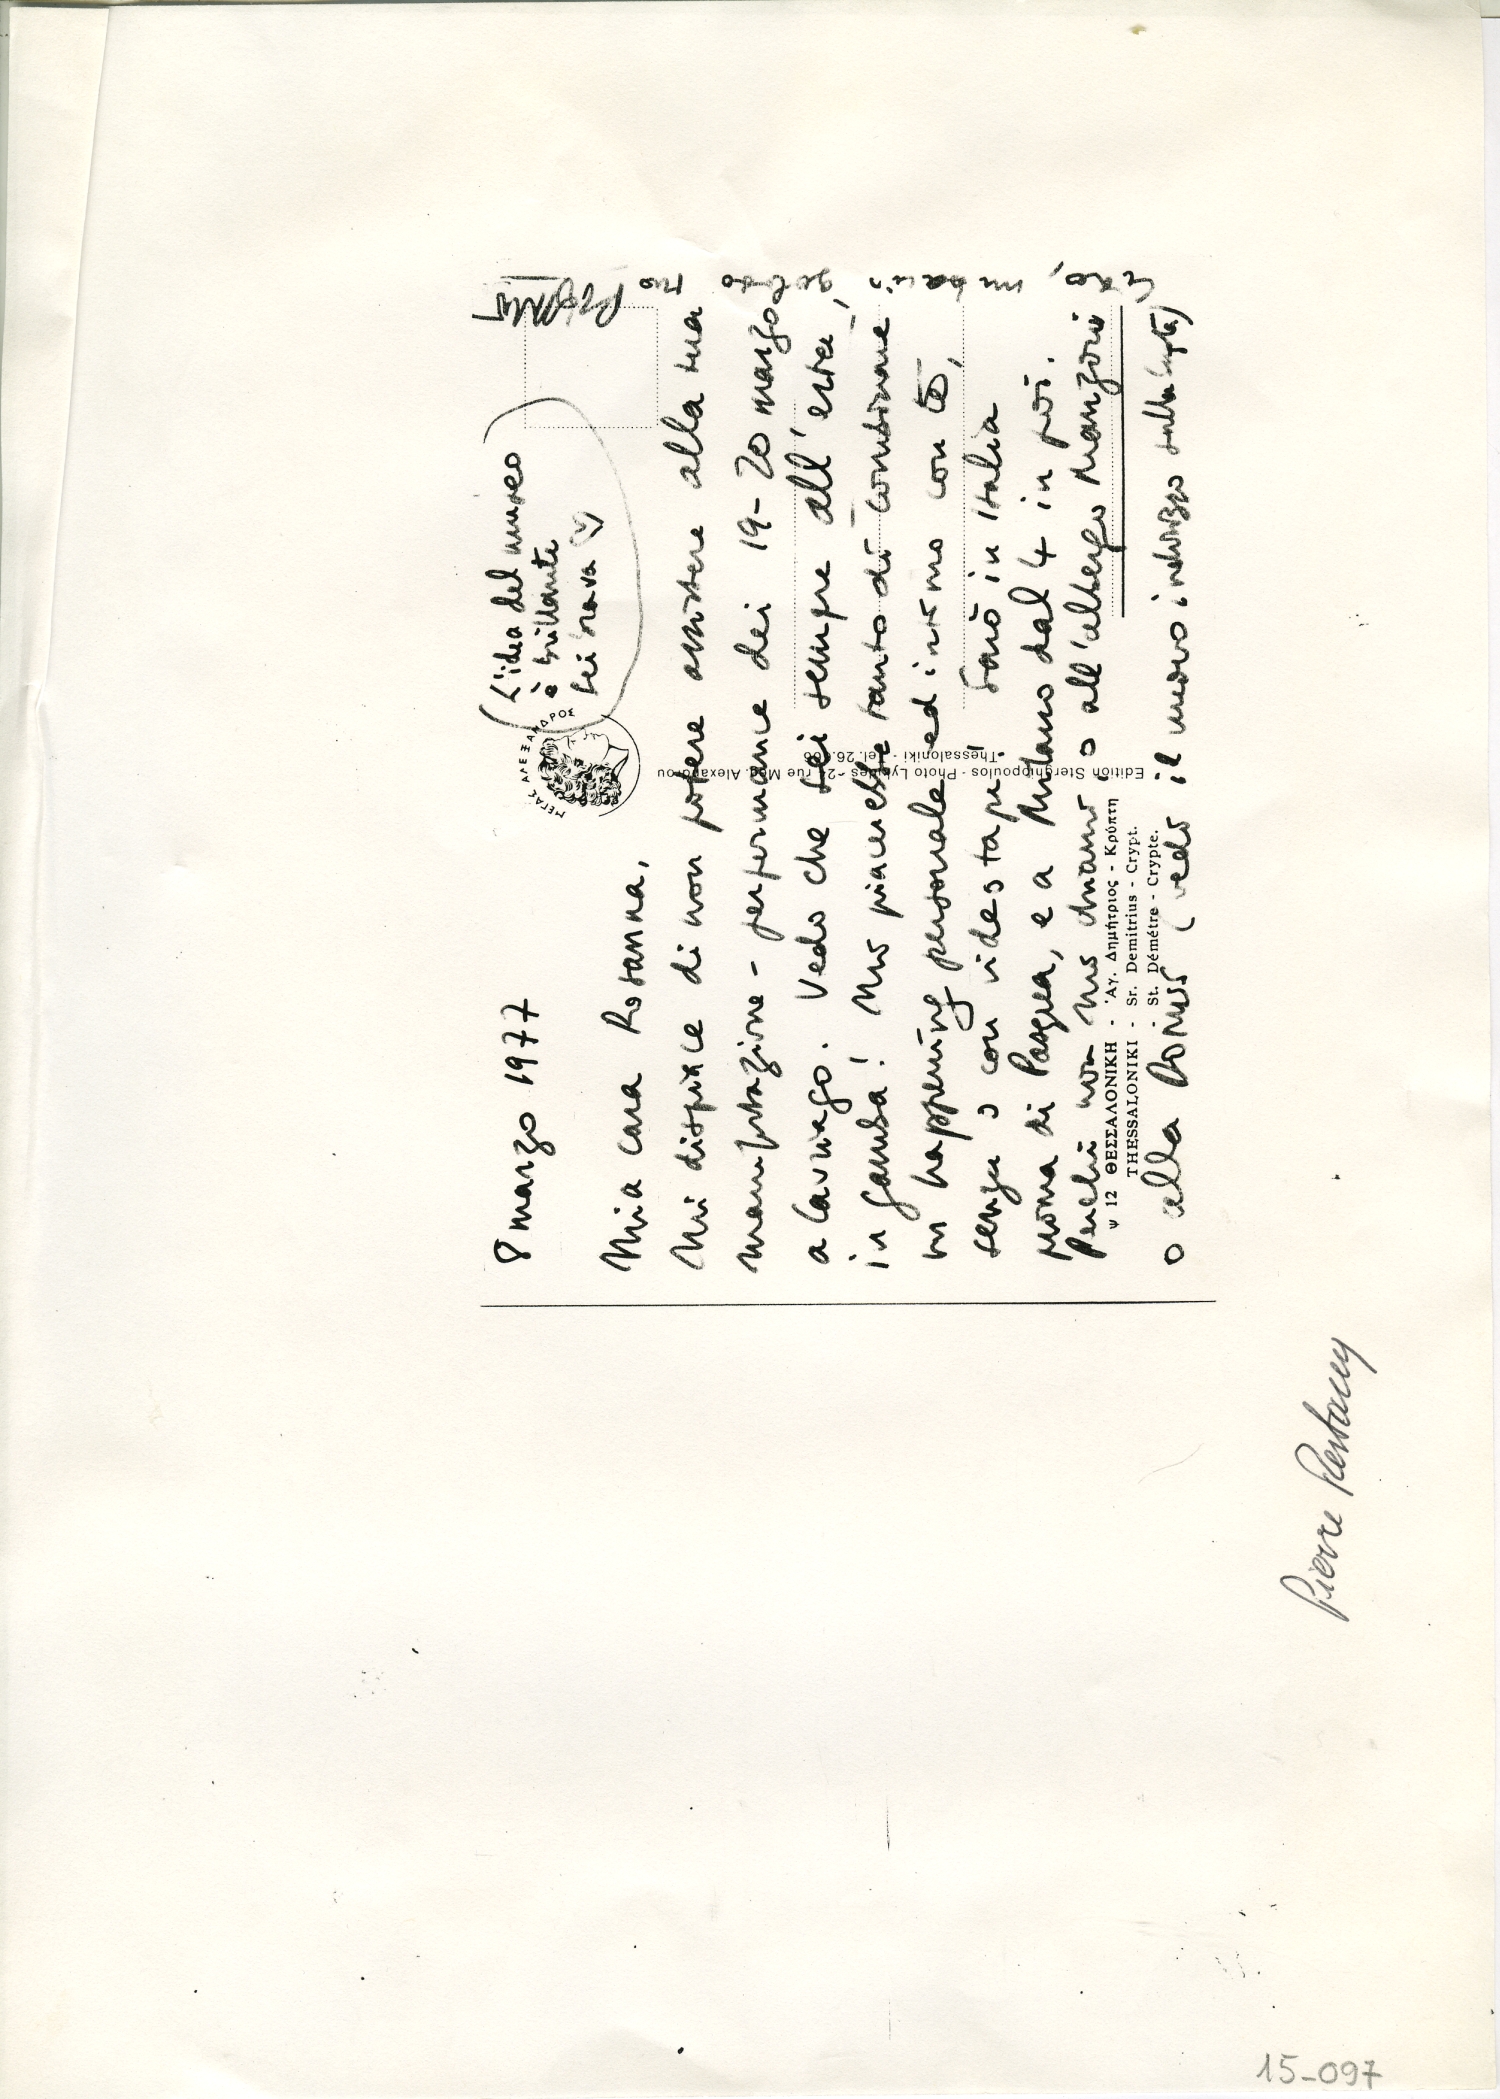 8 marzo 1977
L'idea del museo
è brillante
sei brava
ΜΕΓΑΣ ΑΛΕΞΑΝΔΡΟΣ
Mia cara Rosanna,
Mi dispiace di non potere assistere alla tua
manifestazione - performance dei 19-20 marzo
a Cavriago. Vedo che sei sempre all'erta,
in gamba! Mio piacerebbe tanto di combinare
un happening personale ed intimo con te,
senza o con videotape, sarò in Italia
prima di Pasqua, e a Milano dal 4 in poi.
Perchè non mio chiami, o all'albergo Manzoni
o alla Domus (vedi il nuovo indirizzo sulla busta)
mio
Edition Sterghioppoulos - Photo Lykides - 24 rue Meg. Alexandrou
Thessaloniki - Tel. 26.
ψ 12 ΘΕΣΣΑΛΟΝΙΚΗ - Ἁγ. Δημήτριος - Κρύπτη
THESSALONIKI - Sr. Demitrius - Crypt.
- St. Démétre - Crypte.
Pierre Restany
15-097